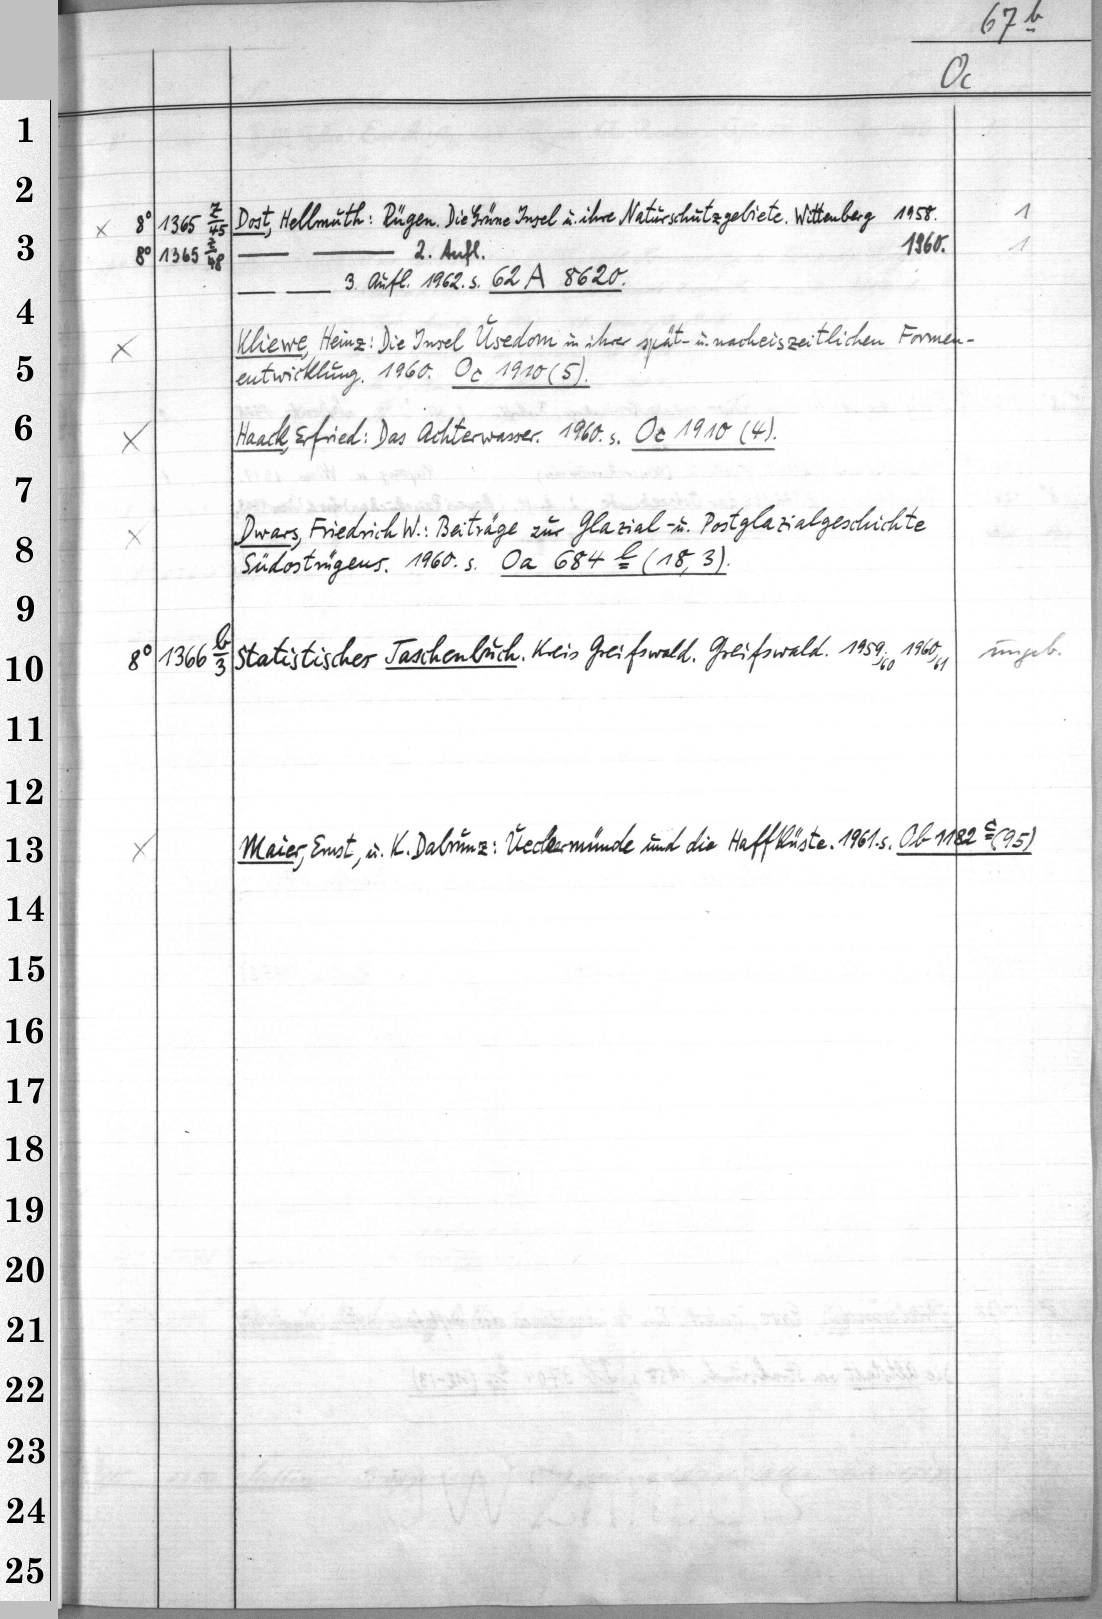 67 b
Oc
1
2
× 8° 1365 z/45 Dost, Hellmuth: Rügen. Die Grüne Insel u. ihre Naturschutzgebiete. Wittenberg 1958. 1
3
8° 1365 z/48 —— —— 2. Aufl. 1960. 1
—— —— 3. Aufl. 1962. s. 62 A 8620.
4
× Kliewe, Heinz: Die Insel Usedom in ihrer spät- u. nacheiszeitlichen Formen-
5
entwicklung. 1960. Oc 1910 (5).
6
× Haack, Erfried: Das Achterwasser. 1960. s. Oc 1910 (4).
7
× Dwars, Friedrich W.: Beiträge zur Glazial- u. Postglazialgeschichte
8
Südostrügens. 1960. s. Oa 684 l (18, 3).
9
8° 1366 b/3 Statistisches Taschenbuch. Kreis Greifswald. Greifswald. 1959/60 1960/61 ungeb.
10
11
12
13
× Maier, Ernst, u. K. Dabrunz: Ueckermünde und die Haffküste. 1961. s. Ob 1182 c (95)
14
15
16
17
18
19
20
21
22
23
24
25